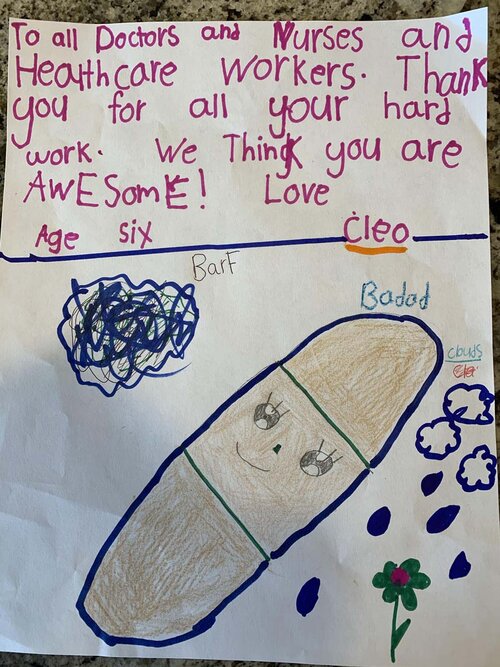 To all Doctors and Nurses and
Healthcare workers. Thank
you for all your hard
work. We Thingk you are
AWESomE! Love
Age six Cleo
BarF
Badad
clouds